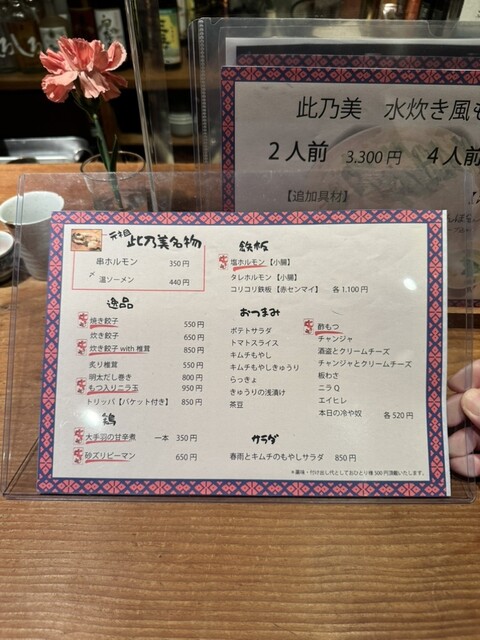 此乃美 水炊き風も
2人前 3.300円 4人前
【追加具材】
元祖 此乃美名物
串ホルモン 350円
〆 温ソーメン 440円
逸品
焼き餃子 550円
炊き餃子 650円
炊き餃子 with 椎茸 850円
炙り椎茸 550円
明太だし巻き 800円
もつ入りニラ玉 950円
トリッパ【バケット付き】 850円
鶏
大手羽の甘辛煮 一本 350円
砂ズリピーマン 650円
鉄板
塩ホルモン【小腸】
タレホルモン【小腸】
コリコリ鉄板【赤センマイ】 各1.100円
おつまみ
ポテトサラダ
トマトスライス
キムチもやし
キムチもやしきゅうり
らっきょ
きゅうりの浅漬け
茶豆
酢もつ
チャンジャ
酒盗とクリームチーズ
チャンジャとクリームチーズ
板わさ
ニラQ
エイヒレ
本日の冷や奴 各520円
サラダ
春雨とキムチのもやしサラダ 850円
＊薬味・付け出し代としておひとり様500円頂戴いたします。